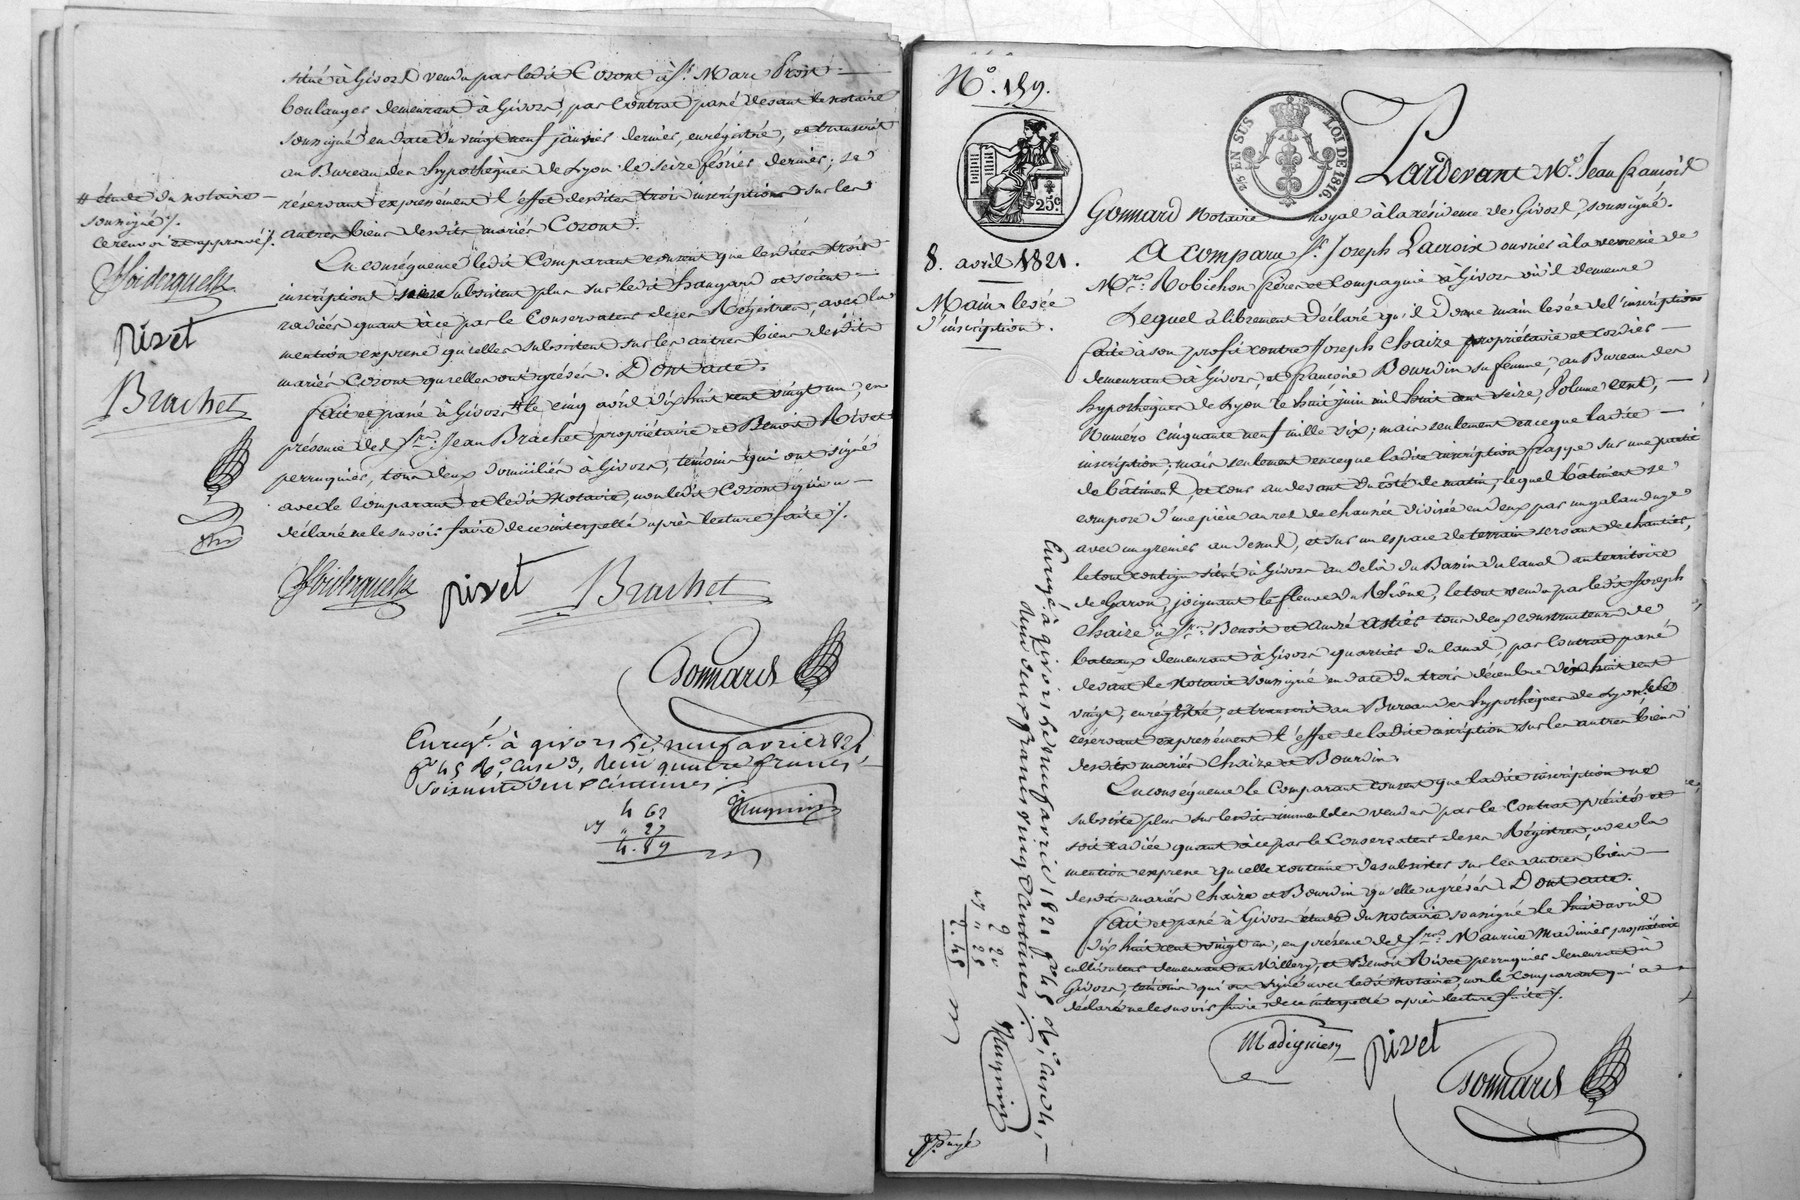 situé à Givors vendu par ledit Cozont à Sr. Marc
boulanger demeurant à Givors, par contrat passé devant le notaire
soussigné en date du vingt neuf janvier dernier, enrégistré, et transcrit
au Bureau des hypothèques de Lyon le seize février dernier; se
réservant expressément l'effet desdites trois inscriptions sur les
autres biens desdits mariés Cozont.
# étude du notaire
soussigné ./.
ce renvoi approuvé ./.
rivet
Brachet
En conséquence ledit Comparant consent que lesdites trois
inscriptions subsistent plus sur ledit hangard et soient
radiées quant à ce par le Conservateur de ses Régistres, avec la
mention expresse qu'elles subsistent sur les autres biens desdits
mariés Cozont qu'elles ont grévés. Dont acte.
fait et passé à Givors # le cinq avril dix huit cent vingt un, en
présence des Srs. Jean Brachet propriétaire et Benoit Rivet
perruquier, tous deux domiciliés à Givors, témoins qui ont signé
avec le comparant et ledit Notaire, non ledit Cozont qui a
déclaré ne le savoir faire de ce interpellé après lecture faite ./.
rivet Brachet
Gonnard
Enregé. à givors le neuf avril 1821
fo 45 Ro, Case 3, Reçu quatre francs,
soixante deux centimes
4 62
27
4.89
No. 159.
25 EN SUS
LOI DE 1816
25c
8. avril 1821.
Main-levée
d'inscription.
Pardevant Me. Jean françois
Gonnard Notaire royal à la résidence de Givors, soussigné.
A comparu Sr. Joseph Lacroix ouvrier à la verrerie de
Mrs. Robichon frères et Compagnie à Givors où il demeure
Lequel a librement déclaré qu'il donne main levée de l'inscription
faite à son profit contre Joseph Chaize propriétaire et cordier
demeurant à Givors, et françoise Bourdin sa femme, au Bureau des
hypothèques de Lyon le huit juin mil huit cent seize, Volume cent,
Numéro cinquante neuf mille six; mais seulement en ce que ladite
inscription; mais seulement en ce que ladite inscription frappe sur une partie
de bâtiment, et cour au devant du côté de matin, lequel bâtiment se
compose d'une pièce au rez de chaussée divisée en deux par un galandage
avec un grenier au dessus, et sur un espace de terrain servant de chantier,
le tout contigu situé à Givors au delà du Bassin du Canal au territoire
de Garon, joignant le fleuve du Rhône, le tout vendu par ledit Joseph
Chaize à Srs. Benoit et André tous deux constructeurs de
bateaux demeurant à Givors quartier du Canal, par contrat passé
devant le Notaire soussigné en date du trois décembre dix huit cent
vingt, enrégistré, et transcrit au Bureau des hypothèques de Lyon
réservant expressément l'effet de ladite inscription sur les autres biens
desdits mariés Chaize et Bourdin.
En conséquence le Comparant consent que ladite inscription ne
subsiste plus sur lesdits immeubles vendus par le contrat précité et
soit radiée quant à ce par le Conservateur de ses Régistres, avec la
mention expresse qu'elle continue de subsister sur les autres biens
desdits mariés Chaize et Bourdin qu'elle a grévés. Dont acte.
fait et passé à Givors étude du Notaire soussigné le huit avril
dix huit cent vingt un, en présence des Srs. Maurice Madinier propriétaire
cultivateur demeurant à Millery, et Benoit Rivet perruquier demeurant à
Givors, témoins qui ont signé avec ledit Notaire, non le comparant qui a
déclaré ne le savoir faire de ce interpellé après lecture faite ./.
rivet
Gonnard
Enregé. à givors le neuf avril 1821 fo 45 Ro, Case 4,
Reçu deux francs vingt Centimes
2 20
25
2.45